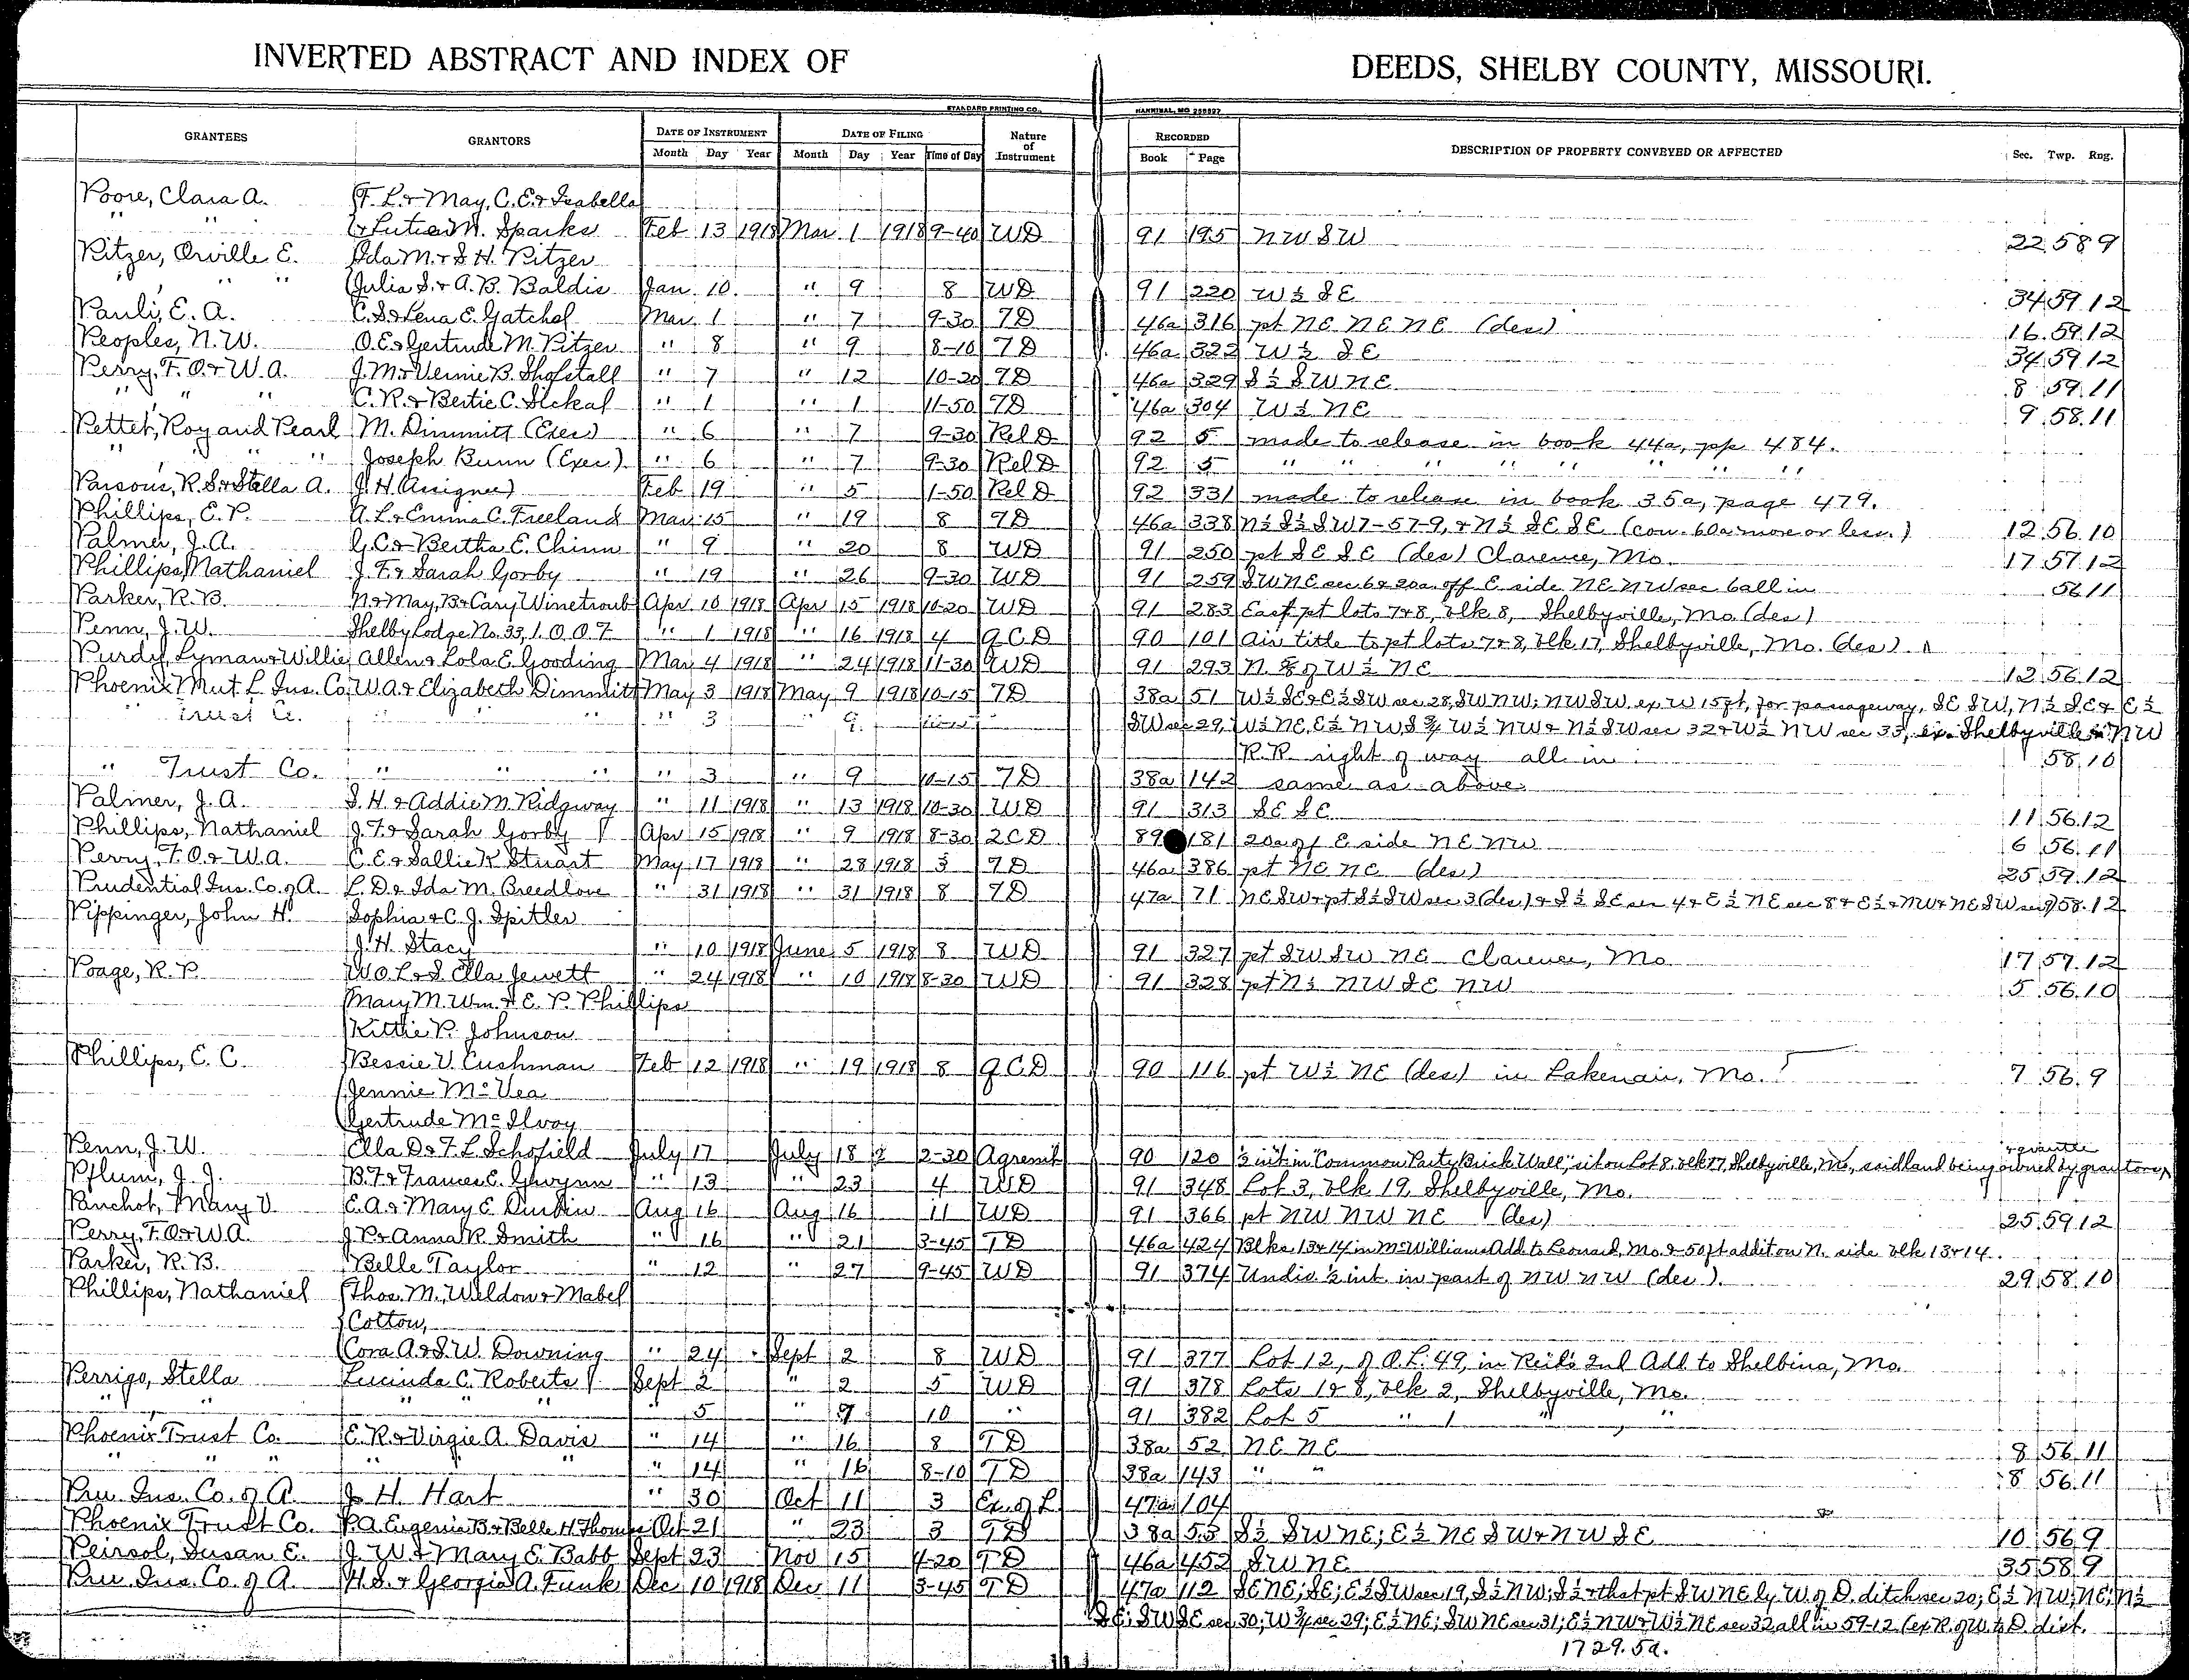 INVERTED ABSTRACT AND INDEX OF DEEDS, SHELBY COUNTY, MISSOURI.
STANDARD PRINTING CO., HANNIBAL, MO 258527
GRANTEES GRANTORS DATE OF INSTRUMENT DATE OF FILING Nature of Instrument RECORDED DESCRIPTION OF PROPERTY CONVEYED OR AFFECTED Sec. Twp. Rng.
Month Day Year Month Day Year Time of Day Book Page
Poore, Clara A. F. L. & May, C. E. & Isabella
" " & M. Sparks Feb 13 1918 Mar 1 1918 9-40 WD 91 195 NW SW 22 58 9
Pitzer, Orville E. Ida M. & S. H. Pitzer
" " " Julia S. & A. B. Baldis Jan. 10 " 9 8 WD 91 220 W ½ SE 34 59 12
Pauli, E. A. C. S. & Lena E. Gatchel Mar 1 " 7 9-30 TD 46a 316 pt NE NE NE (des) 16 59 12
Peoples, N. W. O. E. & Gertrude M. Pitzer " 8 " 9 8-10 TD 46a 322 W ½ SE 34 59 12
Perry, F. O. & W. A. J. M. & Vernie B. Shofstall " 7 " 12 10-20 TD 46a 329 S ½ SW NE 8 59 11
" " " C. R. & Bertie C. " 1 " 1 11-50 TD 46a 304 W ½ NE 9 58 11
Pettet, Roy and Pearl M. Dimmitt (Exec) " 6 " 7 9-30 Rel D 92 5 made to release in book 44a, pp 484.
" " " " Joseph Bunn (Exec.) " 6 " 7 9-30 Rel D 92 5 " " " " " " " "
Parsons, R. S. & Stella A. J. H. Feb 19 " 5 1-50 Rel D 92 331 made to release in book 35a, page 479.
Phillips, E. P. A. L. & Emma C. Freeland Mar 15 " 19 8 TD 46a 338 N ½ S ½ SW 7-57-9, & N ½ SE SE (con. 60a more or less.) 12 56 10
Palmer, J. A. G. C. & Bertha E. Chinn " 9 " 20 8 WD 91 250 pt SE SE (des) Clarence, Mo. 17 57 12
Phillips, Nathaniel J. F. & Sarah Gorby " 19 " 26 9-30 WD 91 259 SW NE sec 6 & 20a. off E side NE NW sec 6 all in 56 11
Parker, R. B. N. & May, B. & Cary Winetroub Apr 10 1918 Apr 15 1918 10-20 WD 91 283 East pt lots 7 & 8, blk 8, Shelbyville, Mo (des)
Penn, J. W. Shelby Lodge No. 33, I. O. O. F " 1 1918 " 16 1918 4 QCD 90 101 Air title to pt lots 7 & 8, blk 17, Shelbyville, Mo. (des)
Purdy, Lyman & Willie Allen & Lola E. Gooding Mar 4 1918 " 24 1918 11-30 WD 91 293 of W ½ NE 12 56 12
Phoenix Mut L. Ins. Co. W. A. & Elizabeth Dimmitt May 3 1918 May 9 1918 10-15 TD 38a 51 W ½ SE & E ½ SW sec 28, SW NW; NW SW ex W 15 ft, for passageway, SE SW, N ½ SE & E ½
" Trust Co. " " " " 3 " 9 SW sec 29, W ½ NE, E ½ NW, S ¾ W ½ NW & N ½ SW sec 32 & W ½ NW sec 33, ex. Shelbyville & NW
R. R. right of way all in 58 10
" Trust Co. " " " " 3 " 9 10-15 TD 38a 142 same as above
Palmer, J. A. S. H. & Addie M. Ridgway " 11 1918 " 13 1918 10-30 WD 91 313 SE SE 11 56 12
Phillips, Nathaniel J. F. & Sarah Gorby Apr 15 1918 " 9 1918 8-30 QCD 89 181 20a of E side NE NW 6 56 11
Perry, F. O. & W. A. C. E. & Sallie K Stuart May 17 1918 " 28 1918 3 TD 46a 386 pt NE NE (des) 25 59 12
Prudential Ins. Co. of A. L. D. & Ida M. Breedlove " 31 1918 " 31 1918 8 TD 47a 71 NE SW & pt S ½ SW sec 3 (des) & S ½ SE sec 4 & E ½ NE sec 8 & E ½ & NW & NE SW sec 9 58 12
Pippinger, John H. Sophia & C. J. Spitler
J. H. Stacy " 10 1918 June 5 1918 8 WD 91 327 pt SW SW NE Clarence, Mo 17 57 12
Poage, R. P. W. O. L. & S. Ella Jewett " 24 1918 " 10 1918 8-30 WD 91 328 pt N ½ NW SE NW 5 56 10
Mary M. Wm. & E. P. Phillips
Kittie P. Johnson
Phillips, E. C. Bessie V. Cushman Feb 12 1918 " 19 1918 8 QCD 90 116 pt W ½ NE (des) in Lakenan, Mo. 7 56 9
Jennie McVea
Gertrude McIlvoy
Penn, J. W. Ella D & F. L. Schofield July 17 July 18 2-30 Agremt 90 120 ½ int in "Common Party Brick Wall", sit on Lot 8, blk 17, Shelbyville, Mo., said land being owned by grantors & grantee
Pflum, J. J. B. F. & Frances E. Gwynn " 13 " 23 4 WD 91 348 Lot 3, blk 19, Shelbyville, Mo.
Panchot, Mary V. E. A. & Mary E. Durbin Aug 16 Aug 16 11 WD 91 366 pt NW NW NE (des) 25 59 12
Perry, F. O. & W. A. J. P. & Anna R. Smith " 16 " 21 3-45 TD 46a 424 Blks. 13 & 14 in McWilliams Add to Leonard, Mo. & 50 ft addit on N. side blk 13 & 14.
Parker, R. B. Belle Taylor " 12 " 27 9-45 WD 91 374 Undiv ½ int. in part of NW NW (des). 29 58 10
Phillips, Nathaniel Thos. M., Weldon & Mabel
Cotton,
Cora A. & S. W. Downing " 24 Sept 2 8 WD 91 377 Lot 12, of O. L. 49, in Reid's 2nd Add to Shelbina, Mo.
Perrigo, Stella Lucinda C. Roberts Sept 2 " 2 5 WD 91 378 Lots 1 & 8, blk 2, Shelbyville, Mo.
" " " " " " 5 " 7 10 " 91 382 Lot 5 " 1 " "
Phoenix Trust Co. E. R. & Virgie A. Davis " 14 " 16 8 TD 38a 52 NE NE 8 56 11
" " " " " " " 14 " 16 8-10 TD 38a 143 " " 8 56 11
Pru Ins. Co. of A. J. H. Hart " 30 Oct 11 3 Ex. of L. 47a 104
Phoenix Trust Co. P. A. Eugenia B. & Belle H. Oct 21 " 23 3 TD 38a 53 S ½ SW NE; E ½ NE SW & NW SE 10 56 9
Peirsol, Susan E. J. W. & Mary E. Babb Sept 23 Nov 15 4-20 TD 46a 452 SW NE 35 58 9
Pru Ins. Co. of A. H. S. & Georgia A. Funk Dec 10 1918 Dec 11 3-45 TD 47a 112 SE NE; SE; E ½ SW sec 19, S ½ NW; S ½ & that pt SW NE ly W. of D. ditch sec 20; E ½ NW; NE; N ½
SE; SW SE sec 30; W ¾ sec 29; E ½ NE; SW NE sec 31; E ½ NW & W ½ NE sec 32 all in 59-12 (ex R. of W. to D. dist.
1729.5a.